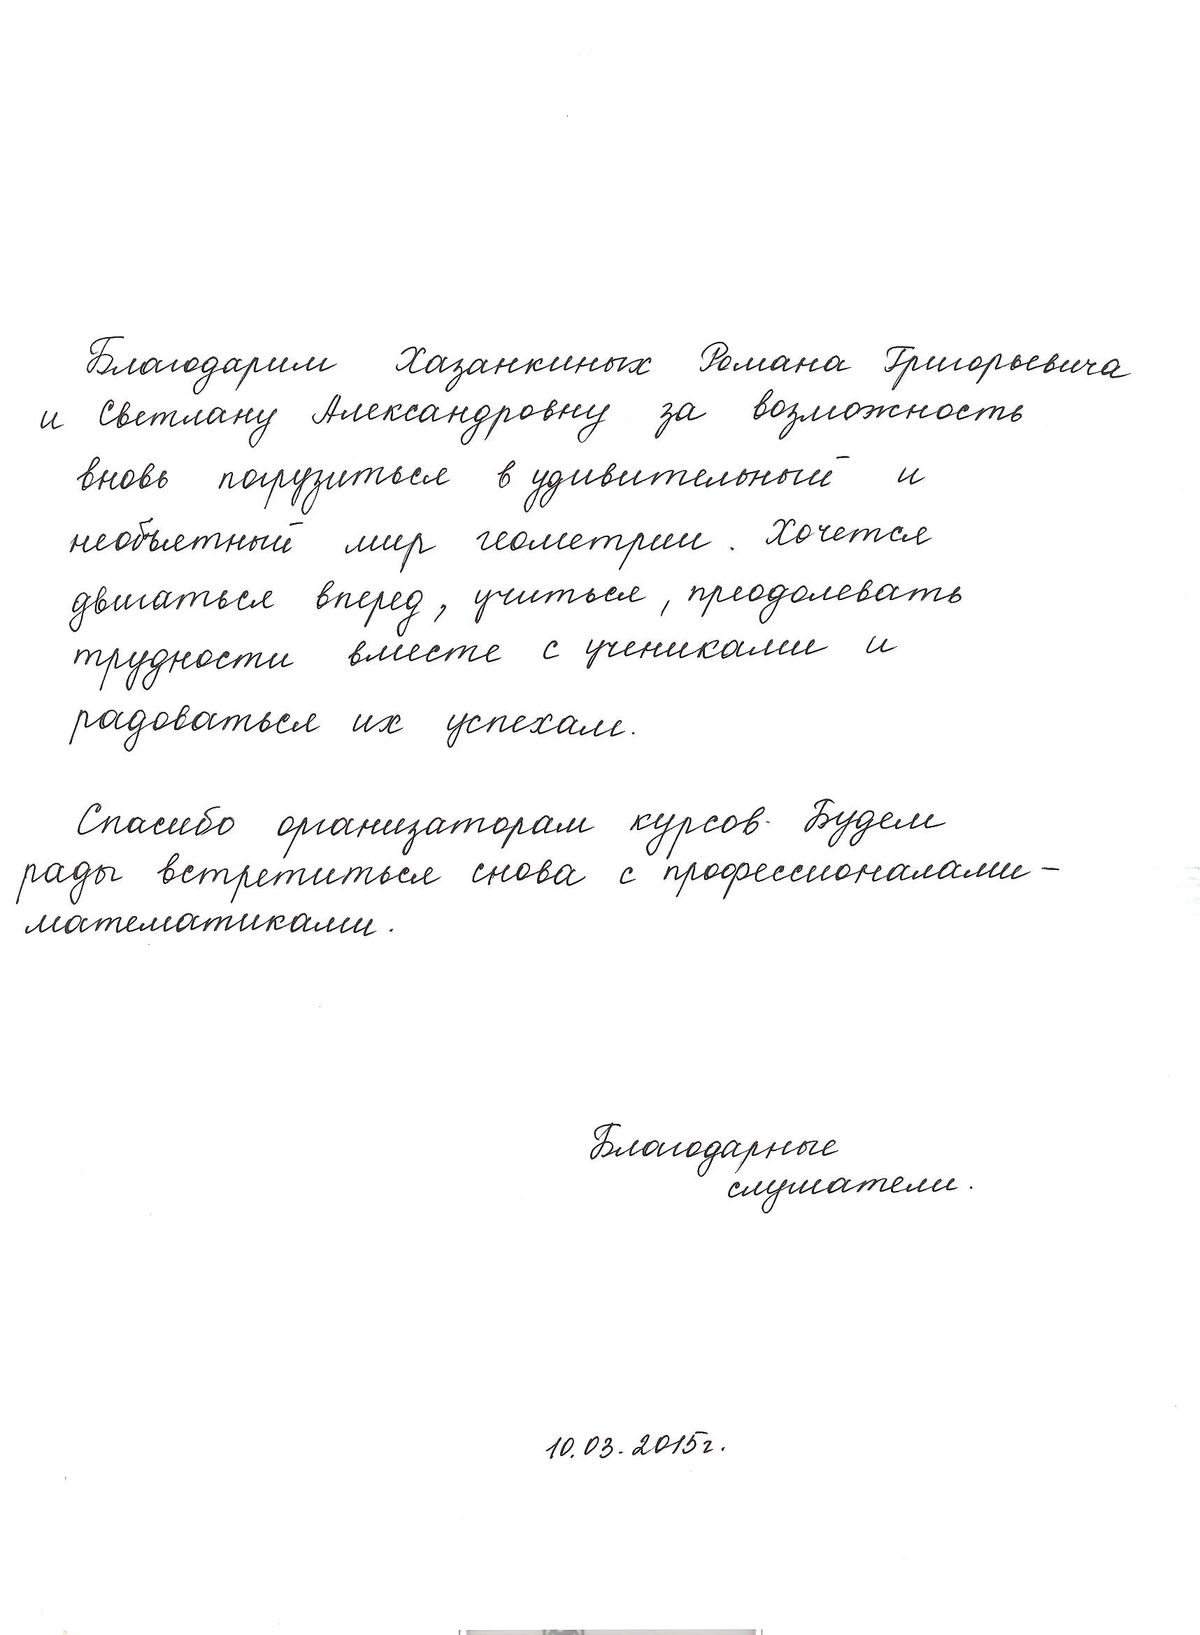 Благодарим Хазанкиных Романа Григорьевича
и Светлану Александровну за возможность
вновь погрузиться в удивительный и
необъятный мир геометрии. Хочется
двигаться вперед, учиться, преодолевать
трудности вместе с учениками и
радоваться их успехам.
Спасибо организаторам курсов. Будем
рады встретиться снова с профессионалами-
математиками.
Благодарные
слушатели.
10.03.2015г.